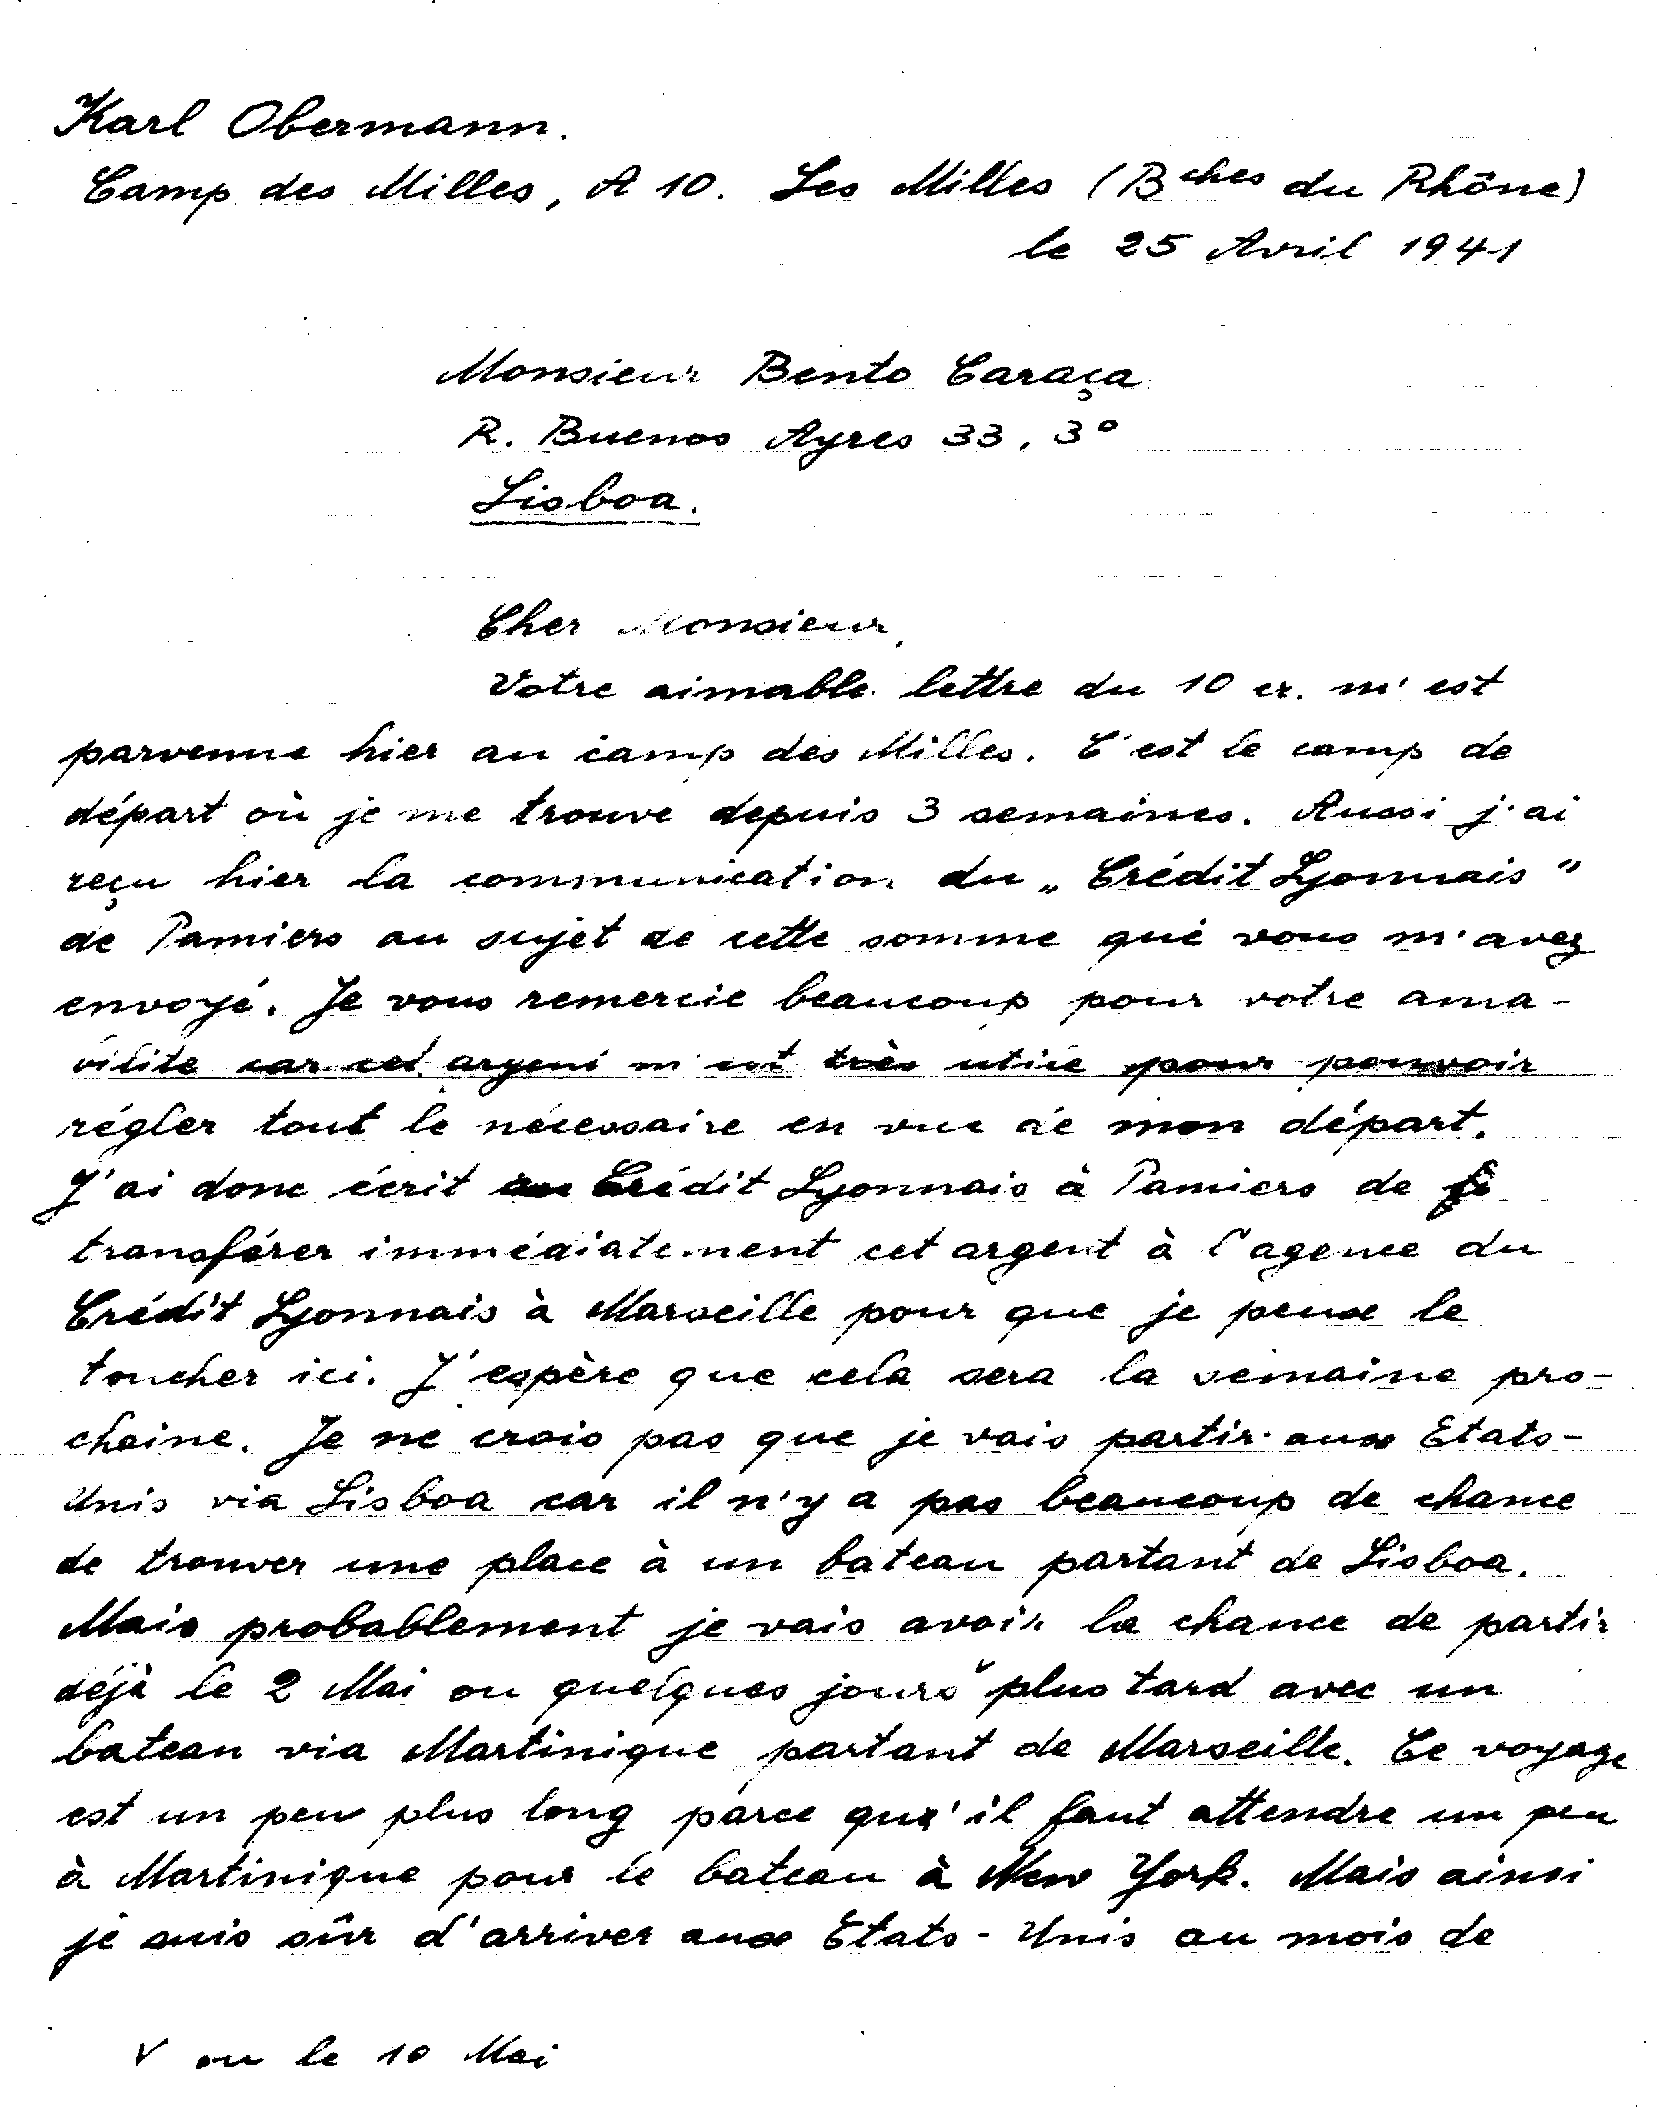 Karl Obermann.
Camp des Milles, A 10. Les Milles (Bches du Rhône)
le 25 Avril 1941
Monsieur Bento Caraça
R. Buenos Ayres 33, 3º
Lisboa.
Cher Monsieur,
Votre aimable lettre du 10 cr. m'est
parvenue hier au camp des Milles. C'est le camp de
départ où je me trouve depuis 3 semaines. Aussi j'ai
reçu hier la communication du „Crédit Lyonnais"
de Pamiers au sujet de cette somme que vous m'avez
envoyé. Je vous remercie beaucoup pour votre ama-
vilité car cet argent m'est très utile pour pouvoir
régler tout le nécessaire en vue de mon départ.
J'ai donc écrit au Crédit Lyonnais à Pamiers de
transférer immédiatement cet argent à l'agence du
Crédit Lyonnais à Marseille pour que je peux le
toucher ici. J'espère que cela sera la semaine pro-
chaine. Je ne crois pas que je vais partir aux Etats-
Unis via Lisboa car il n'y a pas beaucoup de chance
de trouver une place à un bateau partant de Lisboa.
Mais probablement je vais avoir la chance de partir
déjà le 2 Mai ou quelques jours ˅ plus tard avec un
bateau via Martinique partant de Marseille. Ce voyage
est un peu plus long parce qu'il faut attendre un peu
à Martinique pour le bateau à New York. Mais ainsi
je suis sûr d'arriver aux Etats-Unis au mois de
V ou le 10 Mai